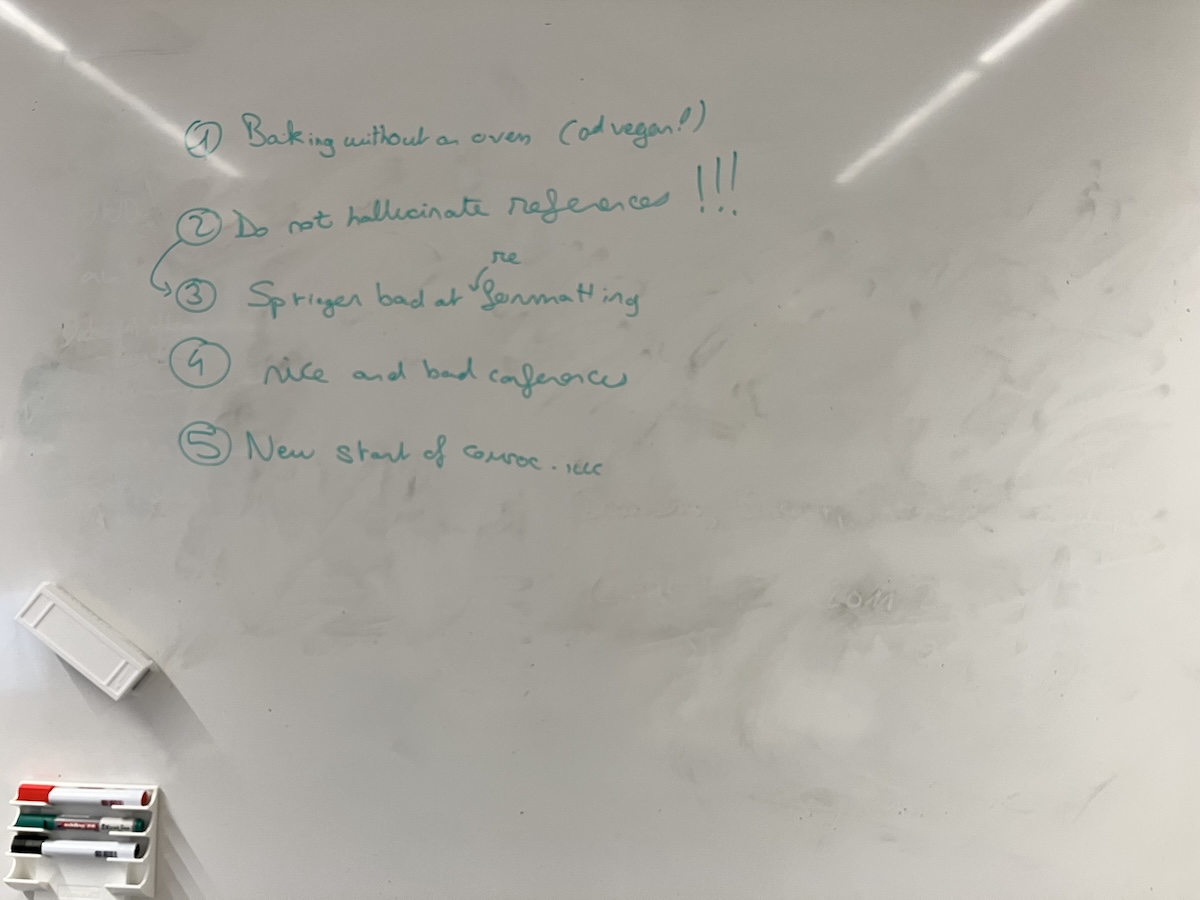 ① Baking without an oven (ad vegan!)
② Do not hallucinate references !!!
re
③ Springer bad at formatting
④ nice and bad conferences
⑤ New start of